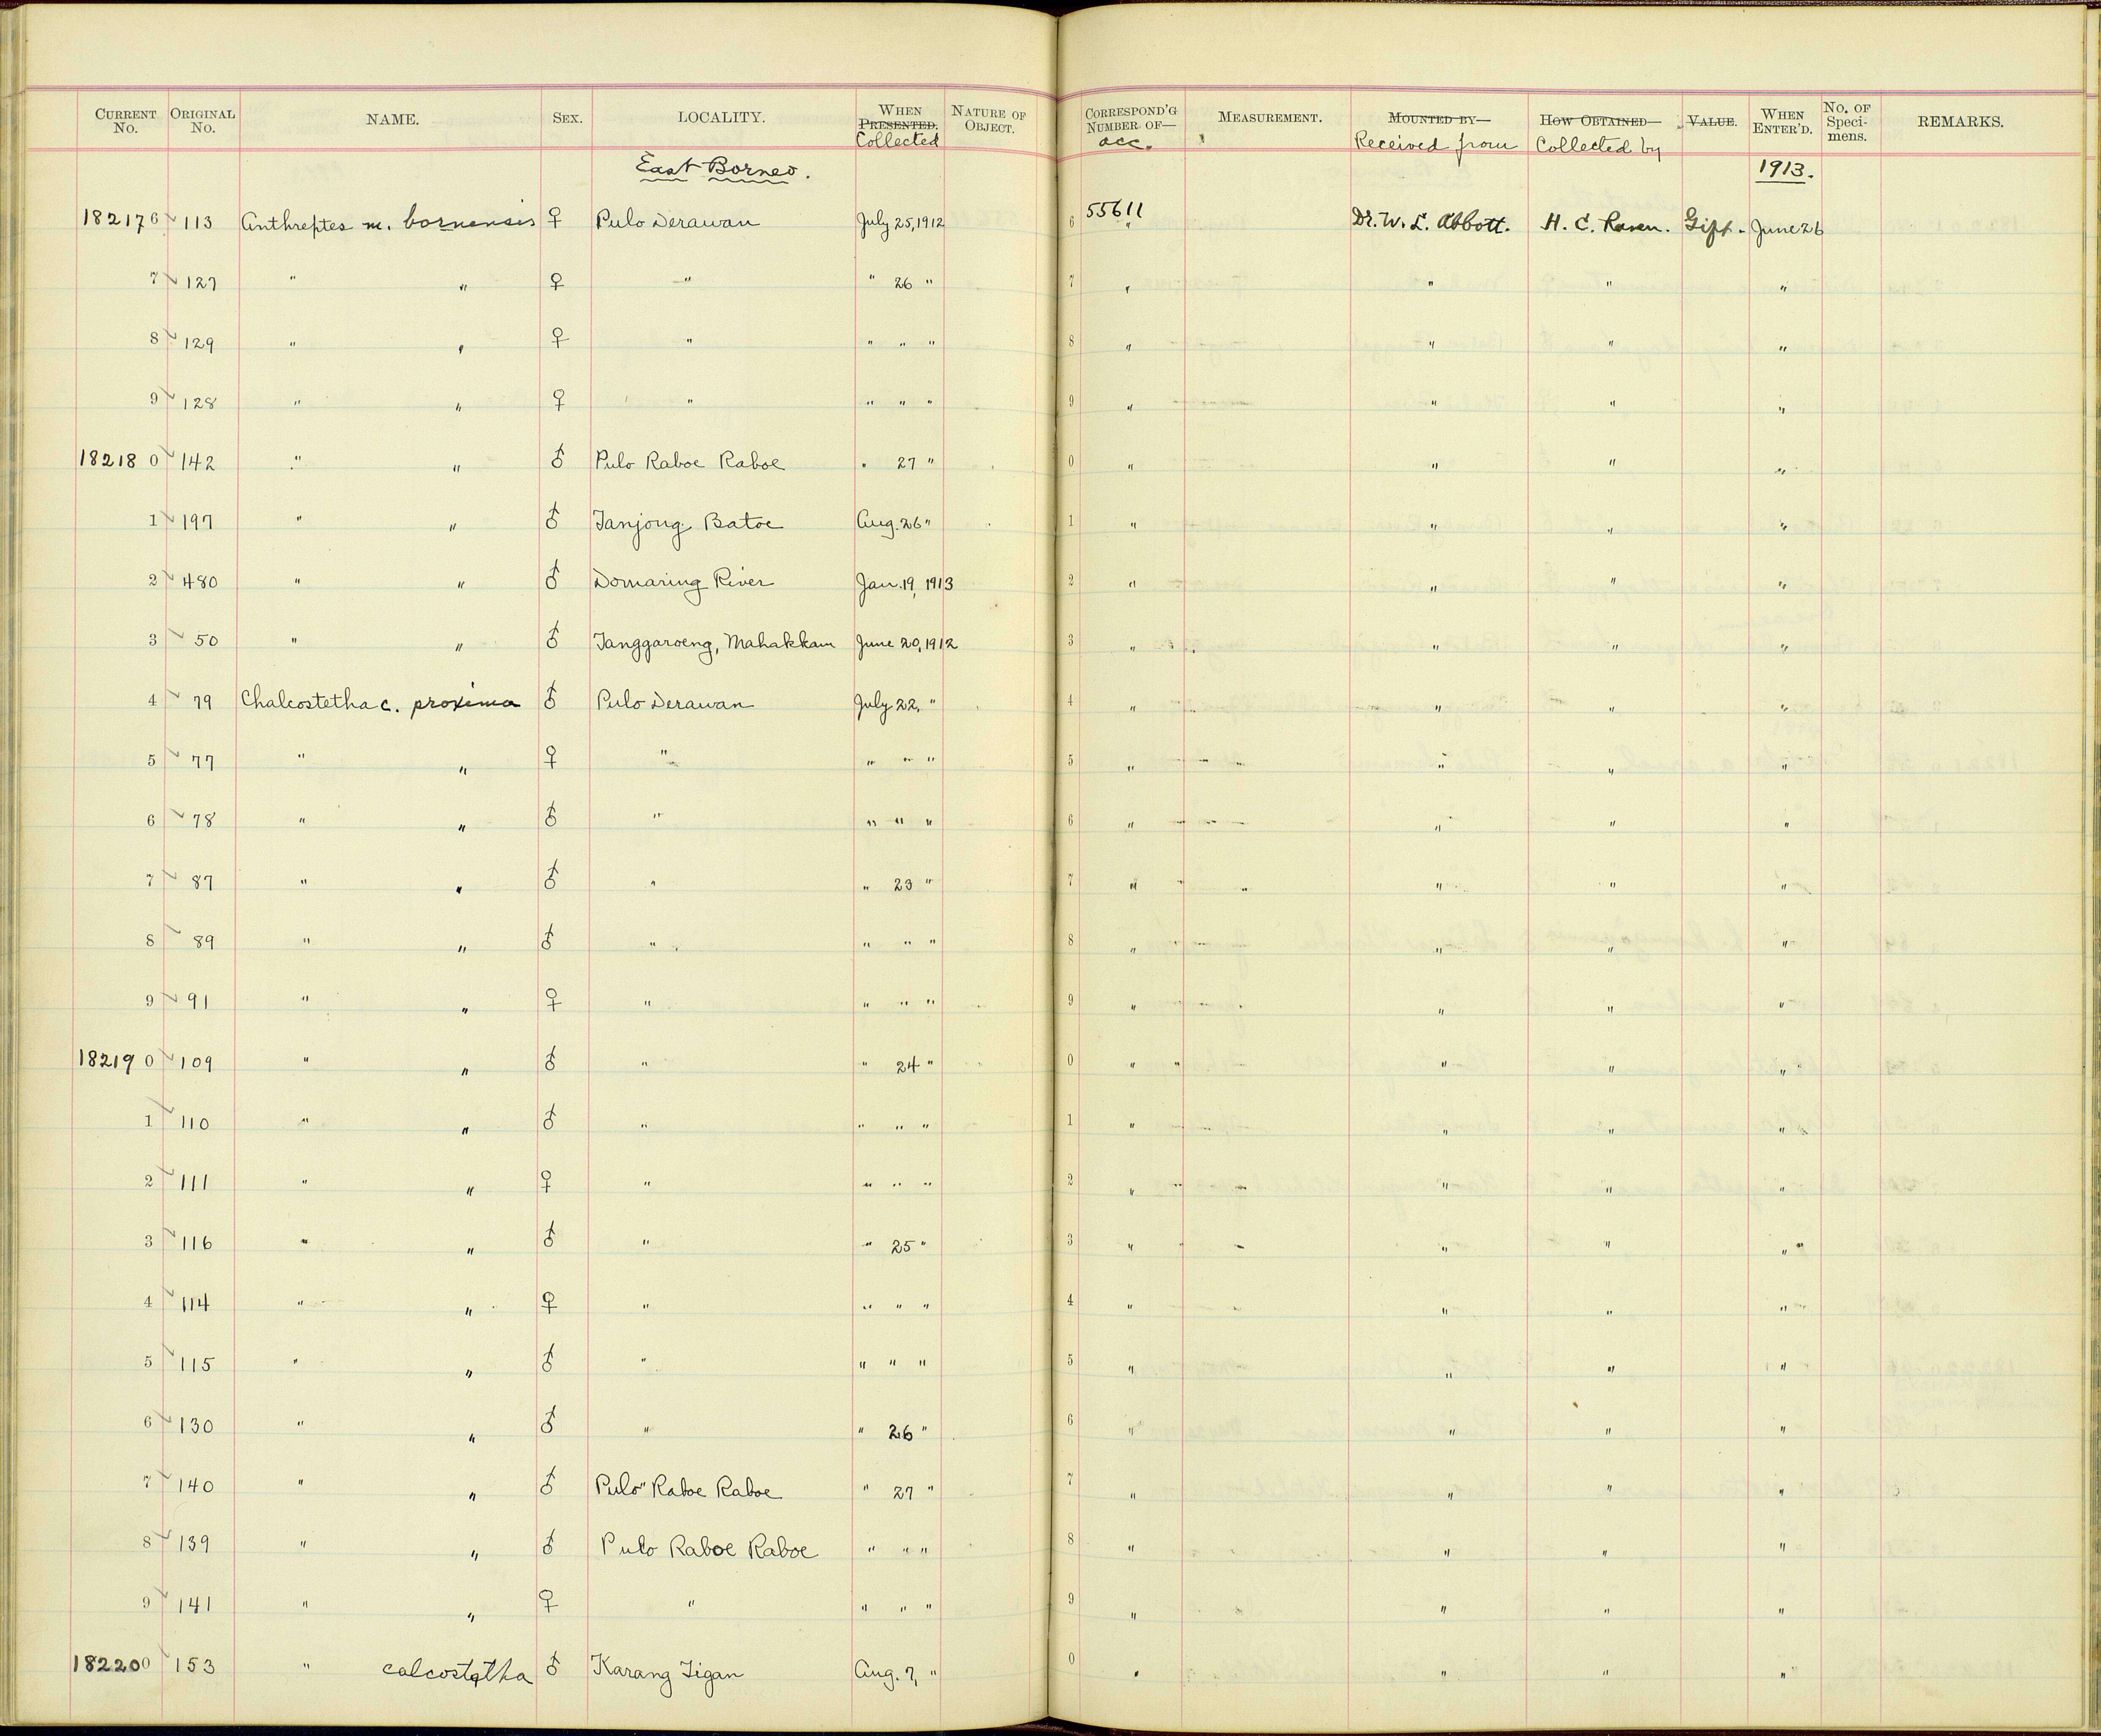 CURRENT No. ORIGINAL No. NAME. SEX. LOCALITY. WHEN PRESENTED. Collected NATURE OF OBJECT. CORRESPOND'G NUMBER OF— acc. MEASUREMENT. MOUNTED BY— Received from HOW OBTAINED— Collected by VALUE. WHEN ENTER'D. No. OF Speci-mens. REMARKS.
East Borneo. 1913.
182176 113 Anthreptes m. bornensis ♀ Pulo Derawan July 25, 1912 6 55611 Dr. W. L. Abbott. H. C. Raven. Gift. June 26
7 127 " " ♀ " " 26 " 7 " " " "
8 129 " " ♀ " " " " 8 " " " "
9 128 " " ♀ " " " " 9 " " " "
182180 142 " " ♂ Pulo Raboe Raboe " 27 " 0 " " " "
1 197 " " ♂ Tanjong Batoe Aug. 26 " 1 " " " "
2 480 " " ♂ Domaring River Jan. 19, 1913 2 " " " "
3 50 " " ♂ Tanggaroeng, Mahakkam June 20, 1912 3 " " " "
4 79 Chalcostetha c. proxima ♂ Pulo Derawan July 22, " 4 " " " "
5 77 " " ♀ " " " " 5 " " " "
6 78 " " ♂ " " " " 6 " " " "
7 87 " " ♂ " " 23 " 7 " " " "
8 89 " " ♂ " " " " 8 " " " "
9 91 " " ♀ " " " " 9 " " " "
182190 109 " " ♂ " " 24 " 0 " " " "
1 110 " " ♂ " " " " 1 " " " "
2 111 " " ♀ " " " " 2 " " " "
3 116 " " ♂ " " 25 " 3 " " " "
4 114 " " ♀ " " " " 4 " " " "
5 115 " " ♂ " " " " 5 " " " "
6 130 " " ♂ " " 26 " 6 " " " "
7 140 " " ♂ Pulo Raboe Raboe " 27 " 7 " " " "
8 139 " " ♂ Pulo Raboe Raboe " " " 8 " " " "
9 141 " " ♀ " " " " 9 " " " "
182200 153 " calcostetha ♂ Karang Tigan Aug. 7, " 0 " " " "